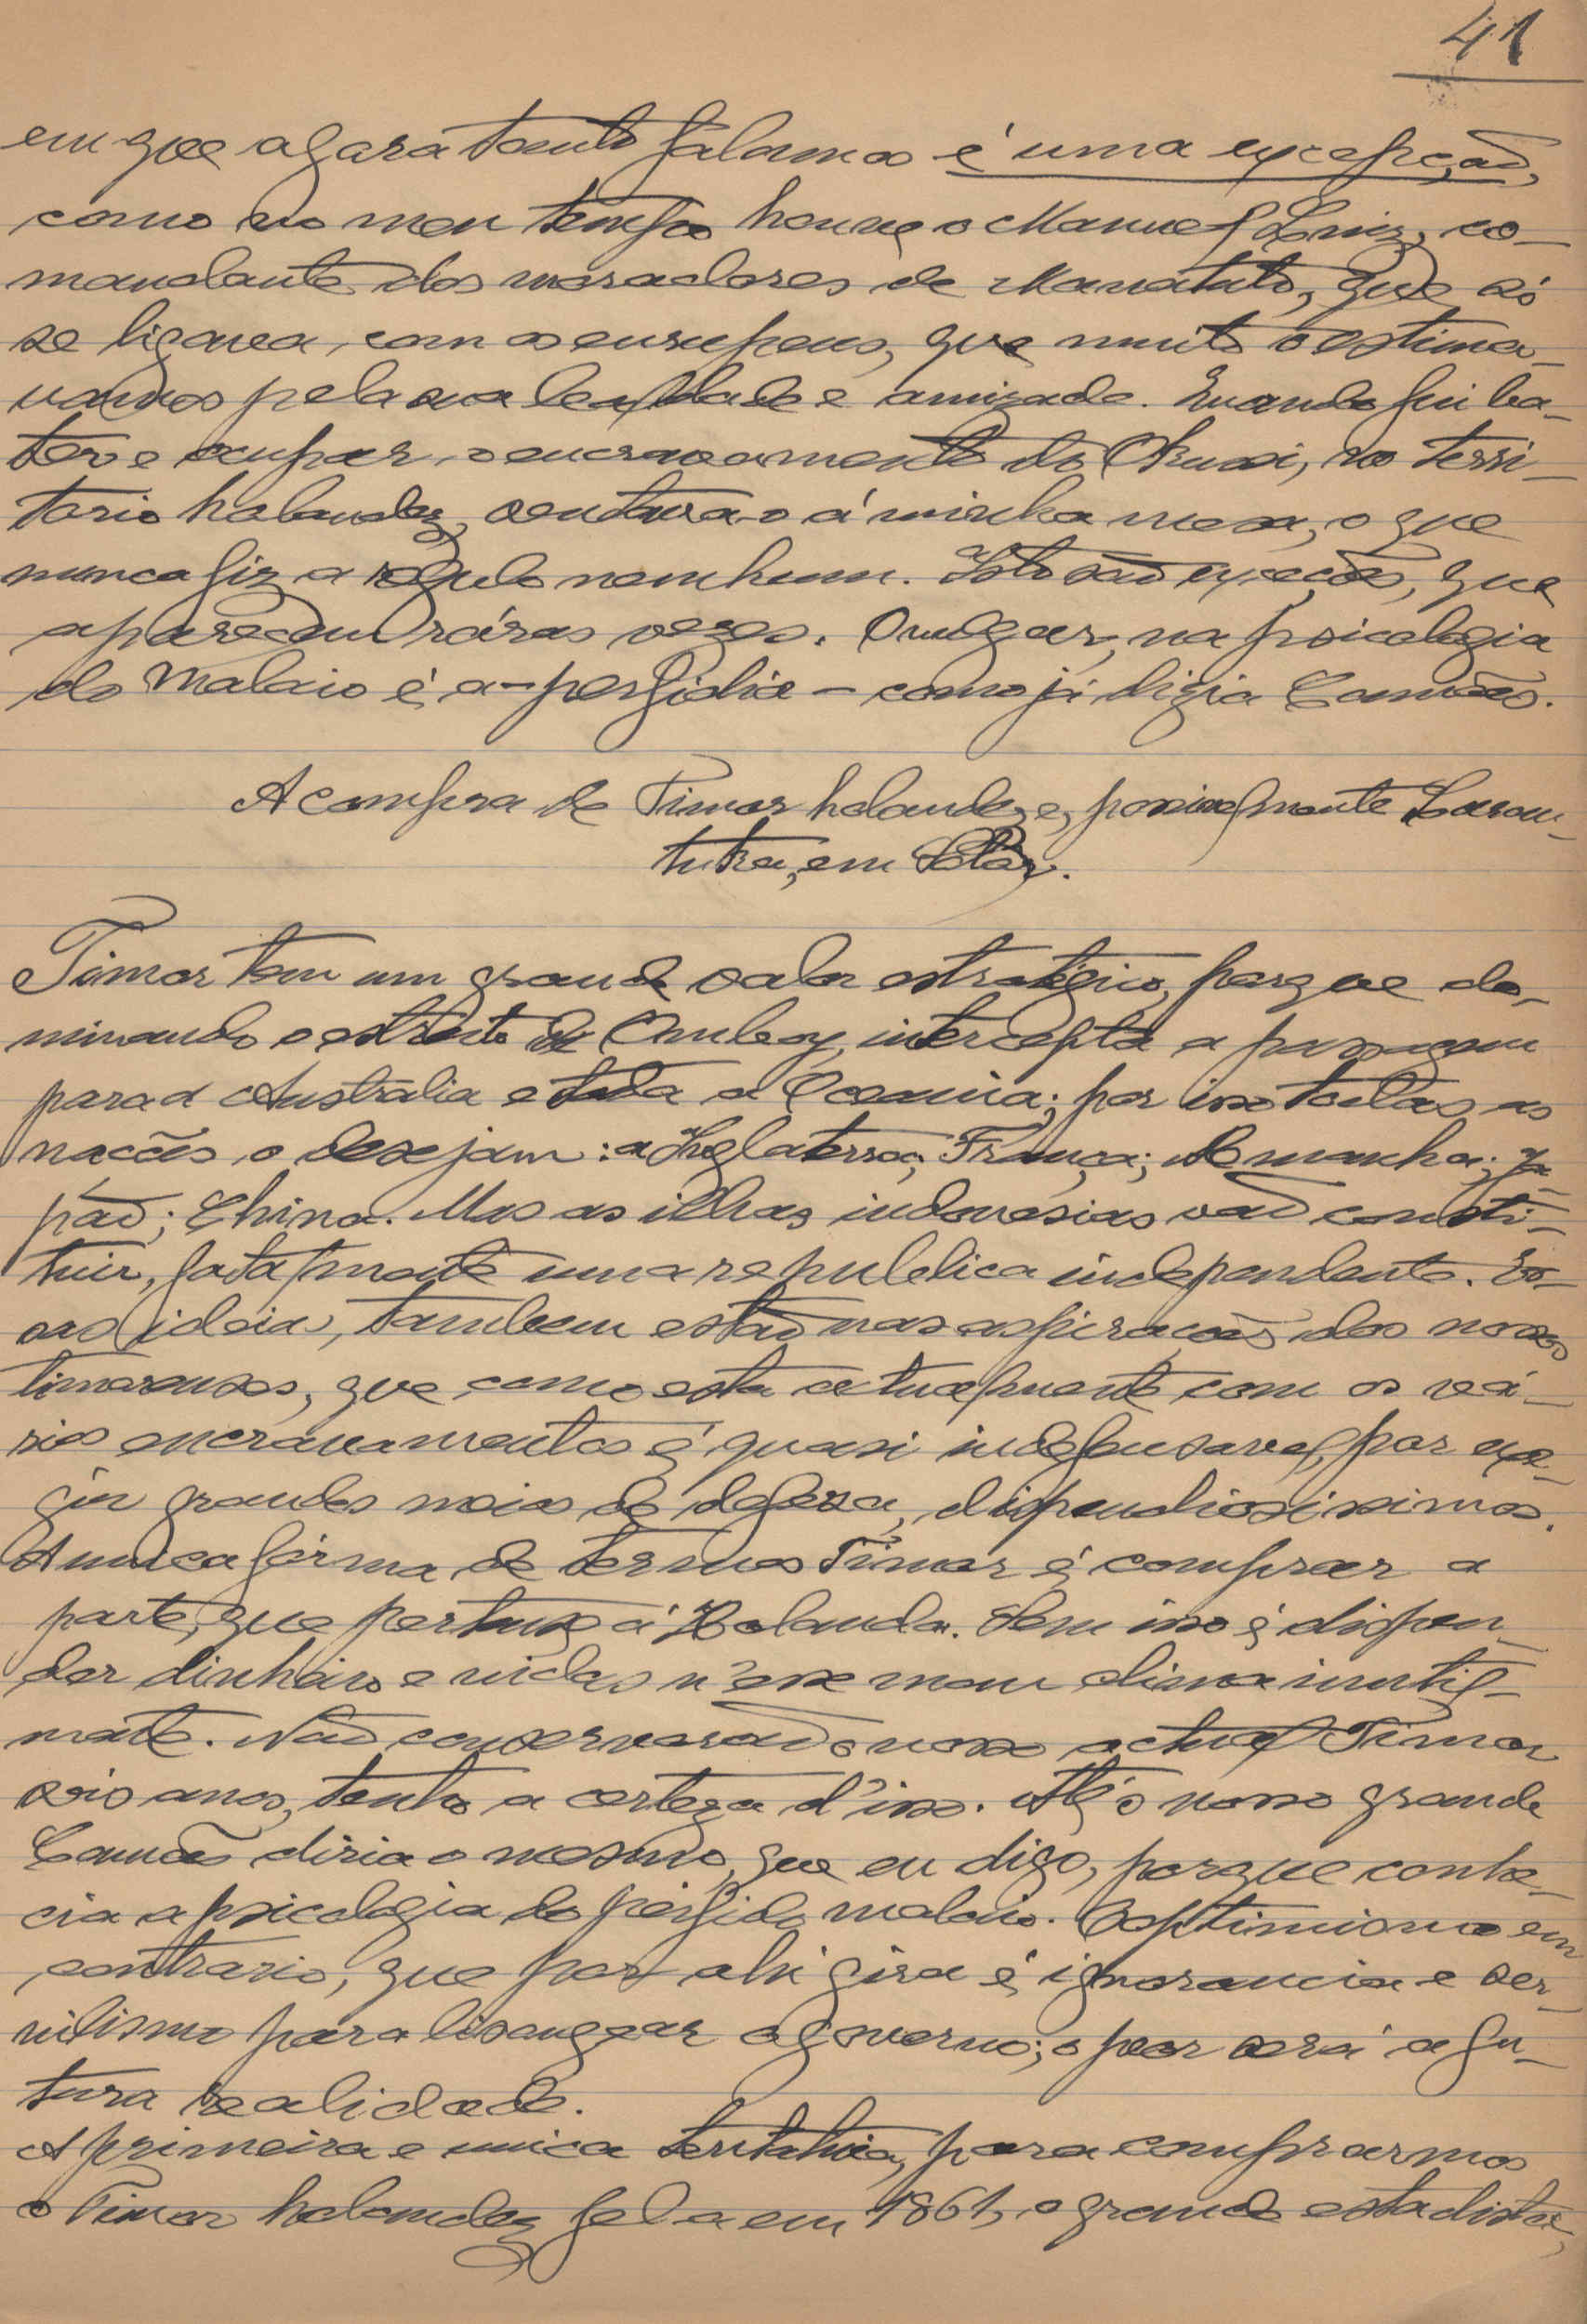 41
em que agora tanto falamos é uma excepção,
como no meu tempo houve o Manuel Luiz, co-
mandante dos moradores de Manatuto, que só
se ligava com os europeus, que muito o estima-
vamos pela sua lealdade e amizade. Quando fui ba-
ter e ocupar o encravamento do Okussi, no terri-
torio holandez, sentava-o á minha mesa, o que
nunca fiz a regulo nenhum. Isto são exceções, que
aparecem ráras vezes. O vulgar, na psicologia
do Malaio é a - perfidia - como já dizia Camões.
A compra de Timor holandez e, possivelmente Laran-
tuka, em Solôr.
Timor tem um grande valor estratégico, porque do-
minando o estreito de Ombay, intercepta a passagem
para a Australia e toda a Oceania; por isso todas as
nacões o desejam: a Inglaterra; França; Alemanha; Ja-
pão; China. Mas as ilhas indonesias vão consti-
tuir, fatalmente uma republica independente. Es-
sas ideias, tambem estão nas aspirações dos nossos
timorenses, que como esta actualmente com os vá-
rios encravamentos é quasi indefensavel, por exi-
gir grandes meios de defesa, dispendiosissimos.
A unica fórma de termos Timor é comprar a
parte, que pertence á Holanda. Sem isso é dispen-
der dinheiro e vidas n'esse mau clima inutil-
mente. Não conservarão o nosso actual Timor
seis anos, tenho a certeza d'isso. Até o nosso grande
Camões diria o mesmo, que eu digo, porque conhe-
cia a psicologia do pérfido malaio. O optimismo em
contrario, que por ahi gira é ignorancia e ser-
vilismo para lisongear o governo; o peor será a fu-
tura realidade.
A primeira e unica tentativa, para comprarmos
o Timor holandez fel-a em 1861, o grande estadista,